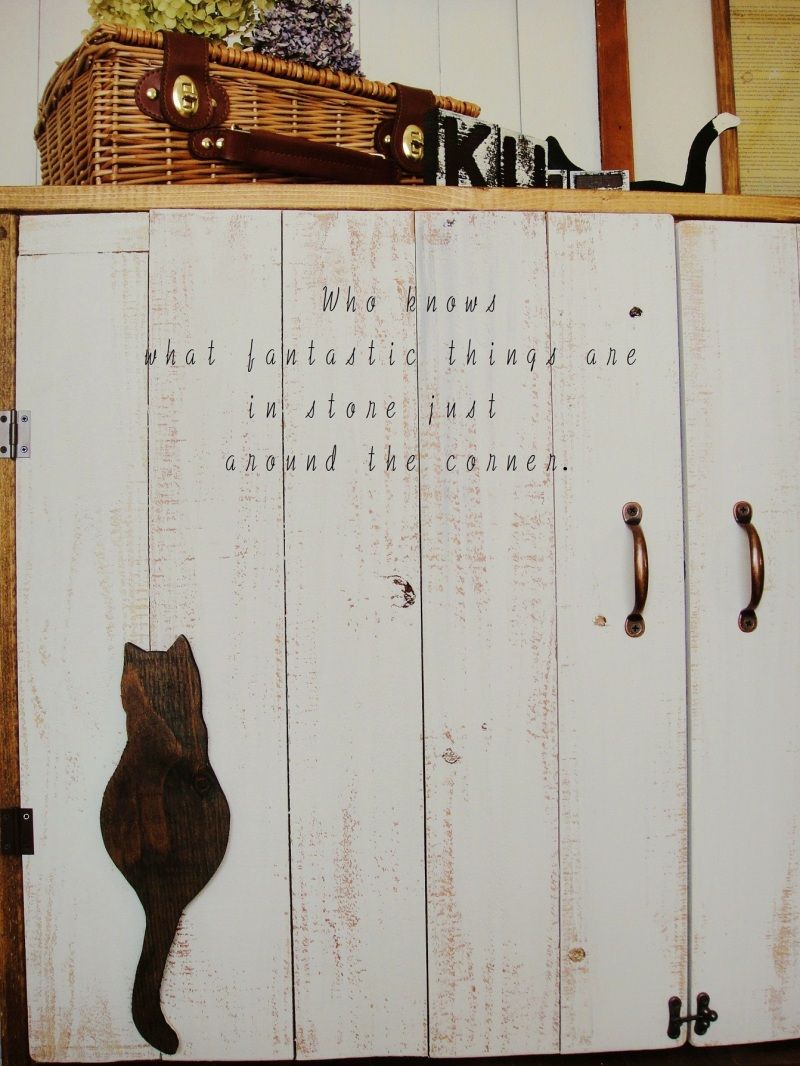 KU
Who knows
what fantastic things are
in store just
around the corner.